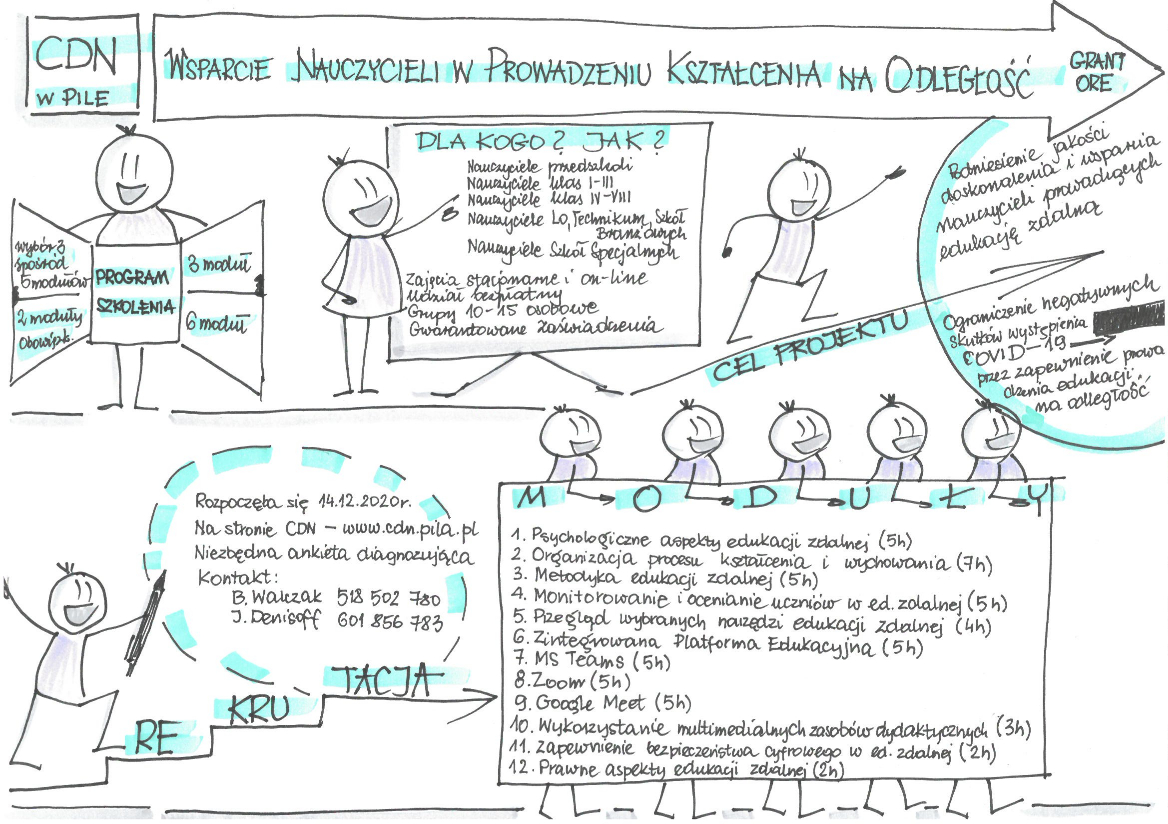 CDN
W PILE
WSPARCIE NAUCZYCIELI W PROWADZENIU KSZTAŁCENIA NA ODLEGŁOŚĆ
GRANT
ORE
DLA KOGO? JAK?
Nauczyciele przedszkoli
Nauczyciele klas I-III
Nauczyciele klas IV-VIII
Nauczyciele LO, Technikum, Szkół
Branżowych
Nauczyciele Szkół Specjalnych
Zajęcia stacjonarne i on-line
Udział bezpłatny
Grupy 10-15 osobowe
Gwarantowane zaświadczenia
wybór 3
spośród
6 modułów
2 moduły
Obowiązk.
PROGRAM
SZKOLENIA
3 moduł
6 moduł
CEL PROJEKTU
Podniesienie jakości
doskonalenia i wsparcia
nauczycieli prowadzących
edukację zdalną
Ograniczenie negatywnych
skutków wystąpienia
COVID-19
przez zapewnienie prowa
dzenia edukacji
na odległość
Rozpoczęta się 14.12.2020r.
Na stronie CDN – www.cdn.pila.pl
Niezbędna ankieta diagnozująca
Kontakt:
B. Walczak 518 502 780
J. Denisoff 601 856 783
RE
KRU
TACJA
MODUŁY
1. Psychologiczne aspekty edukacji zdalnej (5h)
2. Organizacja procesu kształcenia i wychowania (7h)
3. Metodyka edukacji zdalnej (5h)
4. Monitorowanie i ocenianie uczniów w ed. zdalnej (5h)
5. Przegląd wybranych narzędzi edukacji zdalnej (4h)
6. Zintegrowana Platforma Edukacyjna (5h)
7. MS Teams (5h)
8. Zoom (5h)
9. Google Meet (5h)
10. Wykorzystanie multimedialnych zasobów dydaktycznych (3h)
11. Zapewnienie bezpieczeństwa cyfrowego w ed. zdalnej (2h)
12. Prawne aspekty edukacji zdalnej (2h)